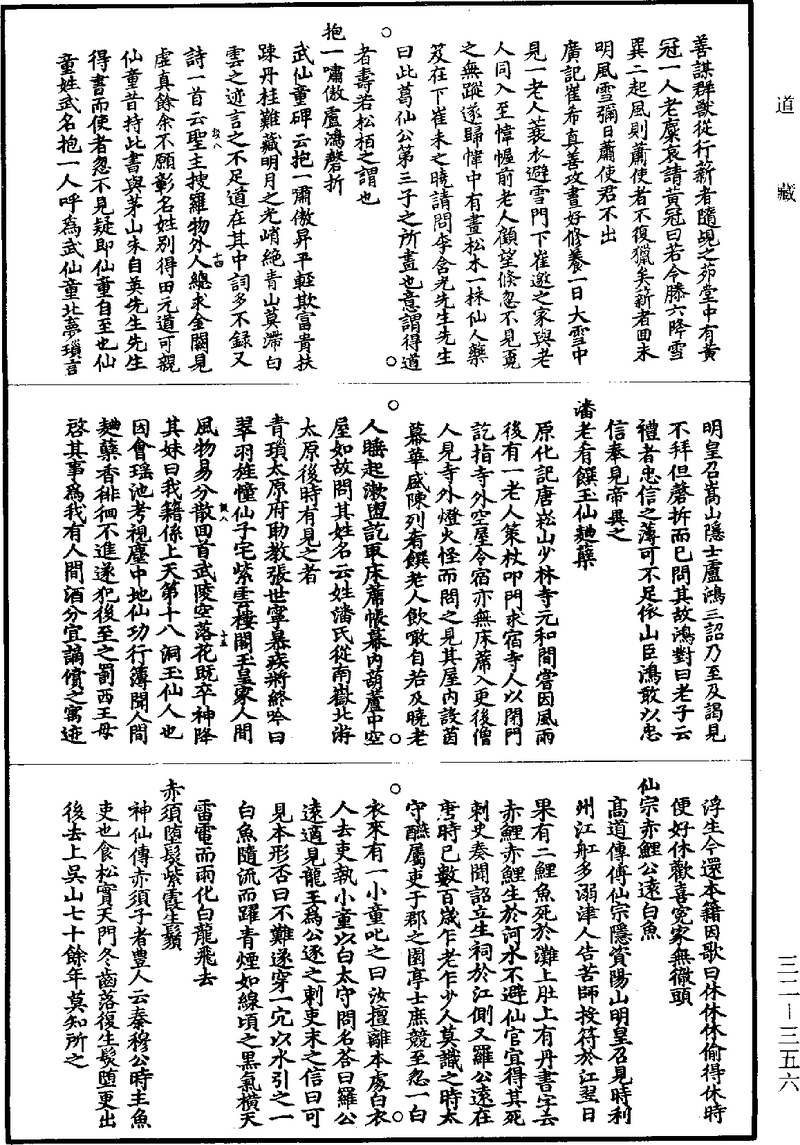 道藏
善謀群獸從行薪者隨覘之茆堂中有黃
冠一人老麋哀請黃冠曰若令滕六降雪
巽二起風則蕭使者不復獵矣薪者回未
明風雪彌日蕭使君不出
廣記崔希真善攻畫好修養一日大雪中
見一老人蓑衣避雪門下崔邀之家與老
人同入至幃幄前老人顧望倏忽不見覔
之無蹤遂歸幃中有畫松木一株仙人藥
笈在下崔未之曉請問李含光先生先生
曰此葛仙公第三子之所畫也意謂得道
者壽若松栢之謂也
抱一嘯傲盧鴻磬折
武仙童碑云抱一嘯傲昇平輕欺富貴扶
踈丹桂難藏明月之光峭絶青山莫滯白
雲之迹言之不足道在其中詞多不錄又
詩一首云聖主搜羅物外人總求金闕見
虛真餘余不願彰名姓别得田元道可親
仙童昔持此書與茅山朱自英先生先生
得書而使者忽不見疑即仙童自至也仙
童姓武名抱一人呼為武仙童北夢瑣言
明皇召嵩山隱士盧鴻三詔乃至及謁見
不拜但磬折而已問其故鴻對曰老子云
禮者忠信之薄可不足依山臣鴻敢以忠
信奉見帝異之
潘老肴饌玉仙麯蘖
原化記唐崧山少林寺元和間嘗因風雨
後有一老人策杖叩門求宿寺人以閉門
訖指寺外空屋令宿亦無床蓆入更後僧
人見寺外燈火怪而問之見其屋内設茵
幕華盛陳列肴饌老人飲噉自若及曉老
人睡起漱盥訖取床蓆帳幕内葫蘆中空
屋如故問其姓名云姓潘氏從南嶽北游
太原後時有見之者
青瑣太原府助教張世寧暴疾將終吟曰
翠羽旌幢仙子宅紫雲樓閣玉皇家人間
風物易分散回首武陵空落花既卒神降
其妹曰我籍係上天第十八洞玉仙人也
因會瑶池考視塵中地仙功行簿聞人間
麯蘖香徘徊不進遂犯後至之罰西王母
啓其事為我有人間酒分宜謫償之寓迹
浮生今還本籍因歌曰休休休偷得休時
便好休歡喜寃家無徹頭
仙宗赤鯉公遠白魚
高道傳傅仙宗隱資陽山明皇召見時利
州江舡多溺津人告苦師投符於江翌日
果有二鯉魚死於灘上肚上有丹書字云
赤鯉赤鯉生於河水不避仙官宜得其死
刺史奏聞詔立生祠於江側又羅公遠在
唐時已數百歲乍老乍少人莫識之時太
守醮屬吏于郡之園亭士庶競至忽一白
衣來有一小童叱之曰汝擅離本處白衣
人去吏執小童以白太守問名荅曰羅公
遠適見龍王為公逐之刺吏未之信曰可
見本形否曰不難遂穿一宂以水引之一
白魚隨流而躍青煙如線頃之黑氣橫天
雷電而雨化白龍飛去
赤須墮髮紫霞生鬚
神仙傳赤須子者豊人云秦穆公時主魚
吏也食松實天門冬齒落復生髮墮更出
後去上吳山七十餘年莫知所之
三二—三五六